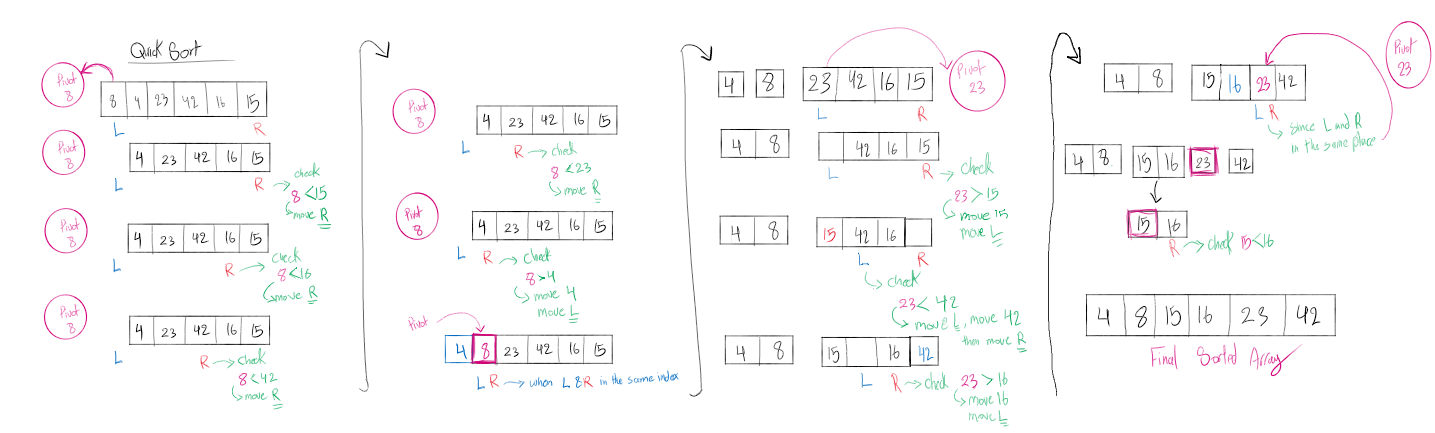 Quick Sort
Pivot
8
8 4 23 42 16 15
L R
Pivot
8
4 23 42 16 15
L R → check
8 < 15
move R
Pivot
8
4 23 42 16 15
L R → check
8 < 16
move R
Pivot
8
4 23 42 16 15
L R → check
8 < 42
move R
Pivot
8
4 23 42 16 15
L R → check
8 < 23
move R
Pivot
8
4 23 42 16 15
L R → check
8 > 4
move 4
move L
Pivot
4 8 23 42 16 15
L R → when L & R in the same index
4 8 23 42 16 15
Pivot
23
L R
4 8 42 16 15
L R → check
23 > 15
move 15
move L
4 8 15 42 16
L R
check
23 < 42
move L, move 42
then move R
4 8 15 16 42
L R → check 23 > 16
move 16
move L
Pivot
23
4 8 15 16 23 42
L R
since L and R
in the same place
4 8 15 16 23 42
15 16
R → check 15 < 16
4 8 15 16 23 42
Final Sorted Array